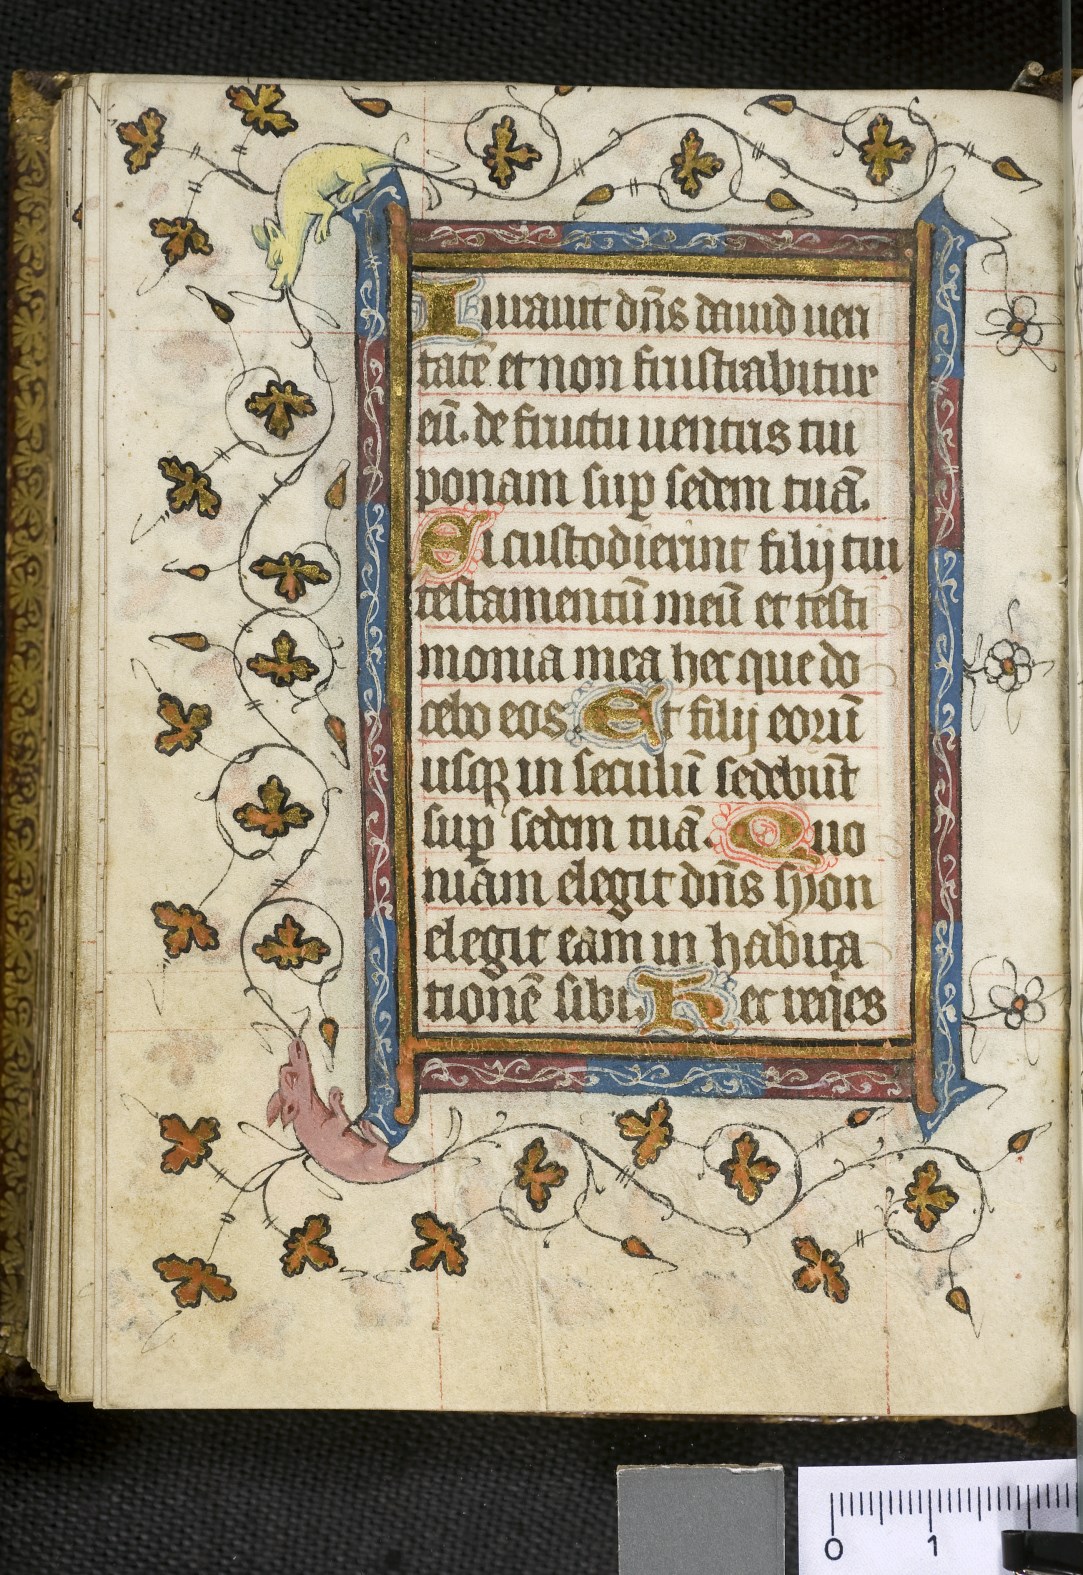 Iurauit dn̄s dauid ueri
tatē et non frustrabitur
eū. de fructu uentris tui
ponam sup̱ sedem tuā.
Si custodierint filij tui
testamentū meū et testi
monia mea hec que do
cebo eos. Et filij eorū
usqꝫ in seculū sedebūt
sup̱ sedem tuā. Quo
niam elegit dn̄s syon
elegit eam in habita
tionē sibi. Hec reqͥes
0 1